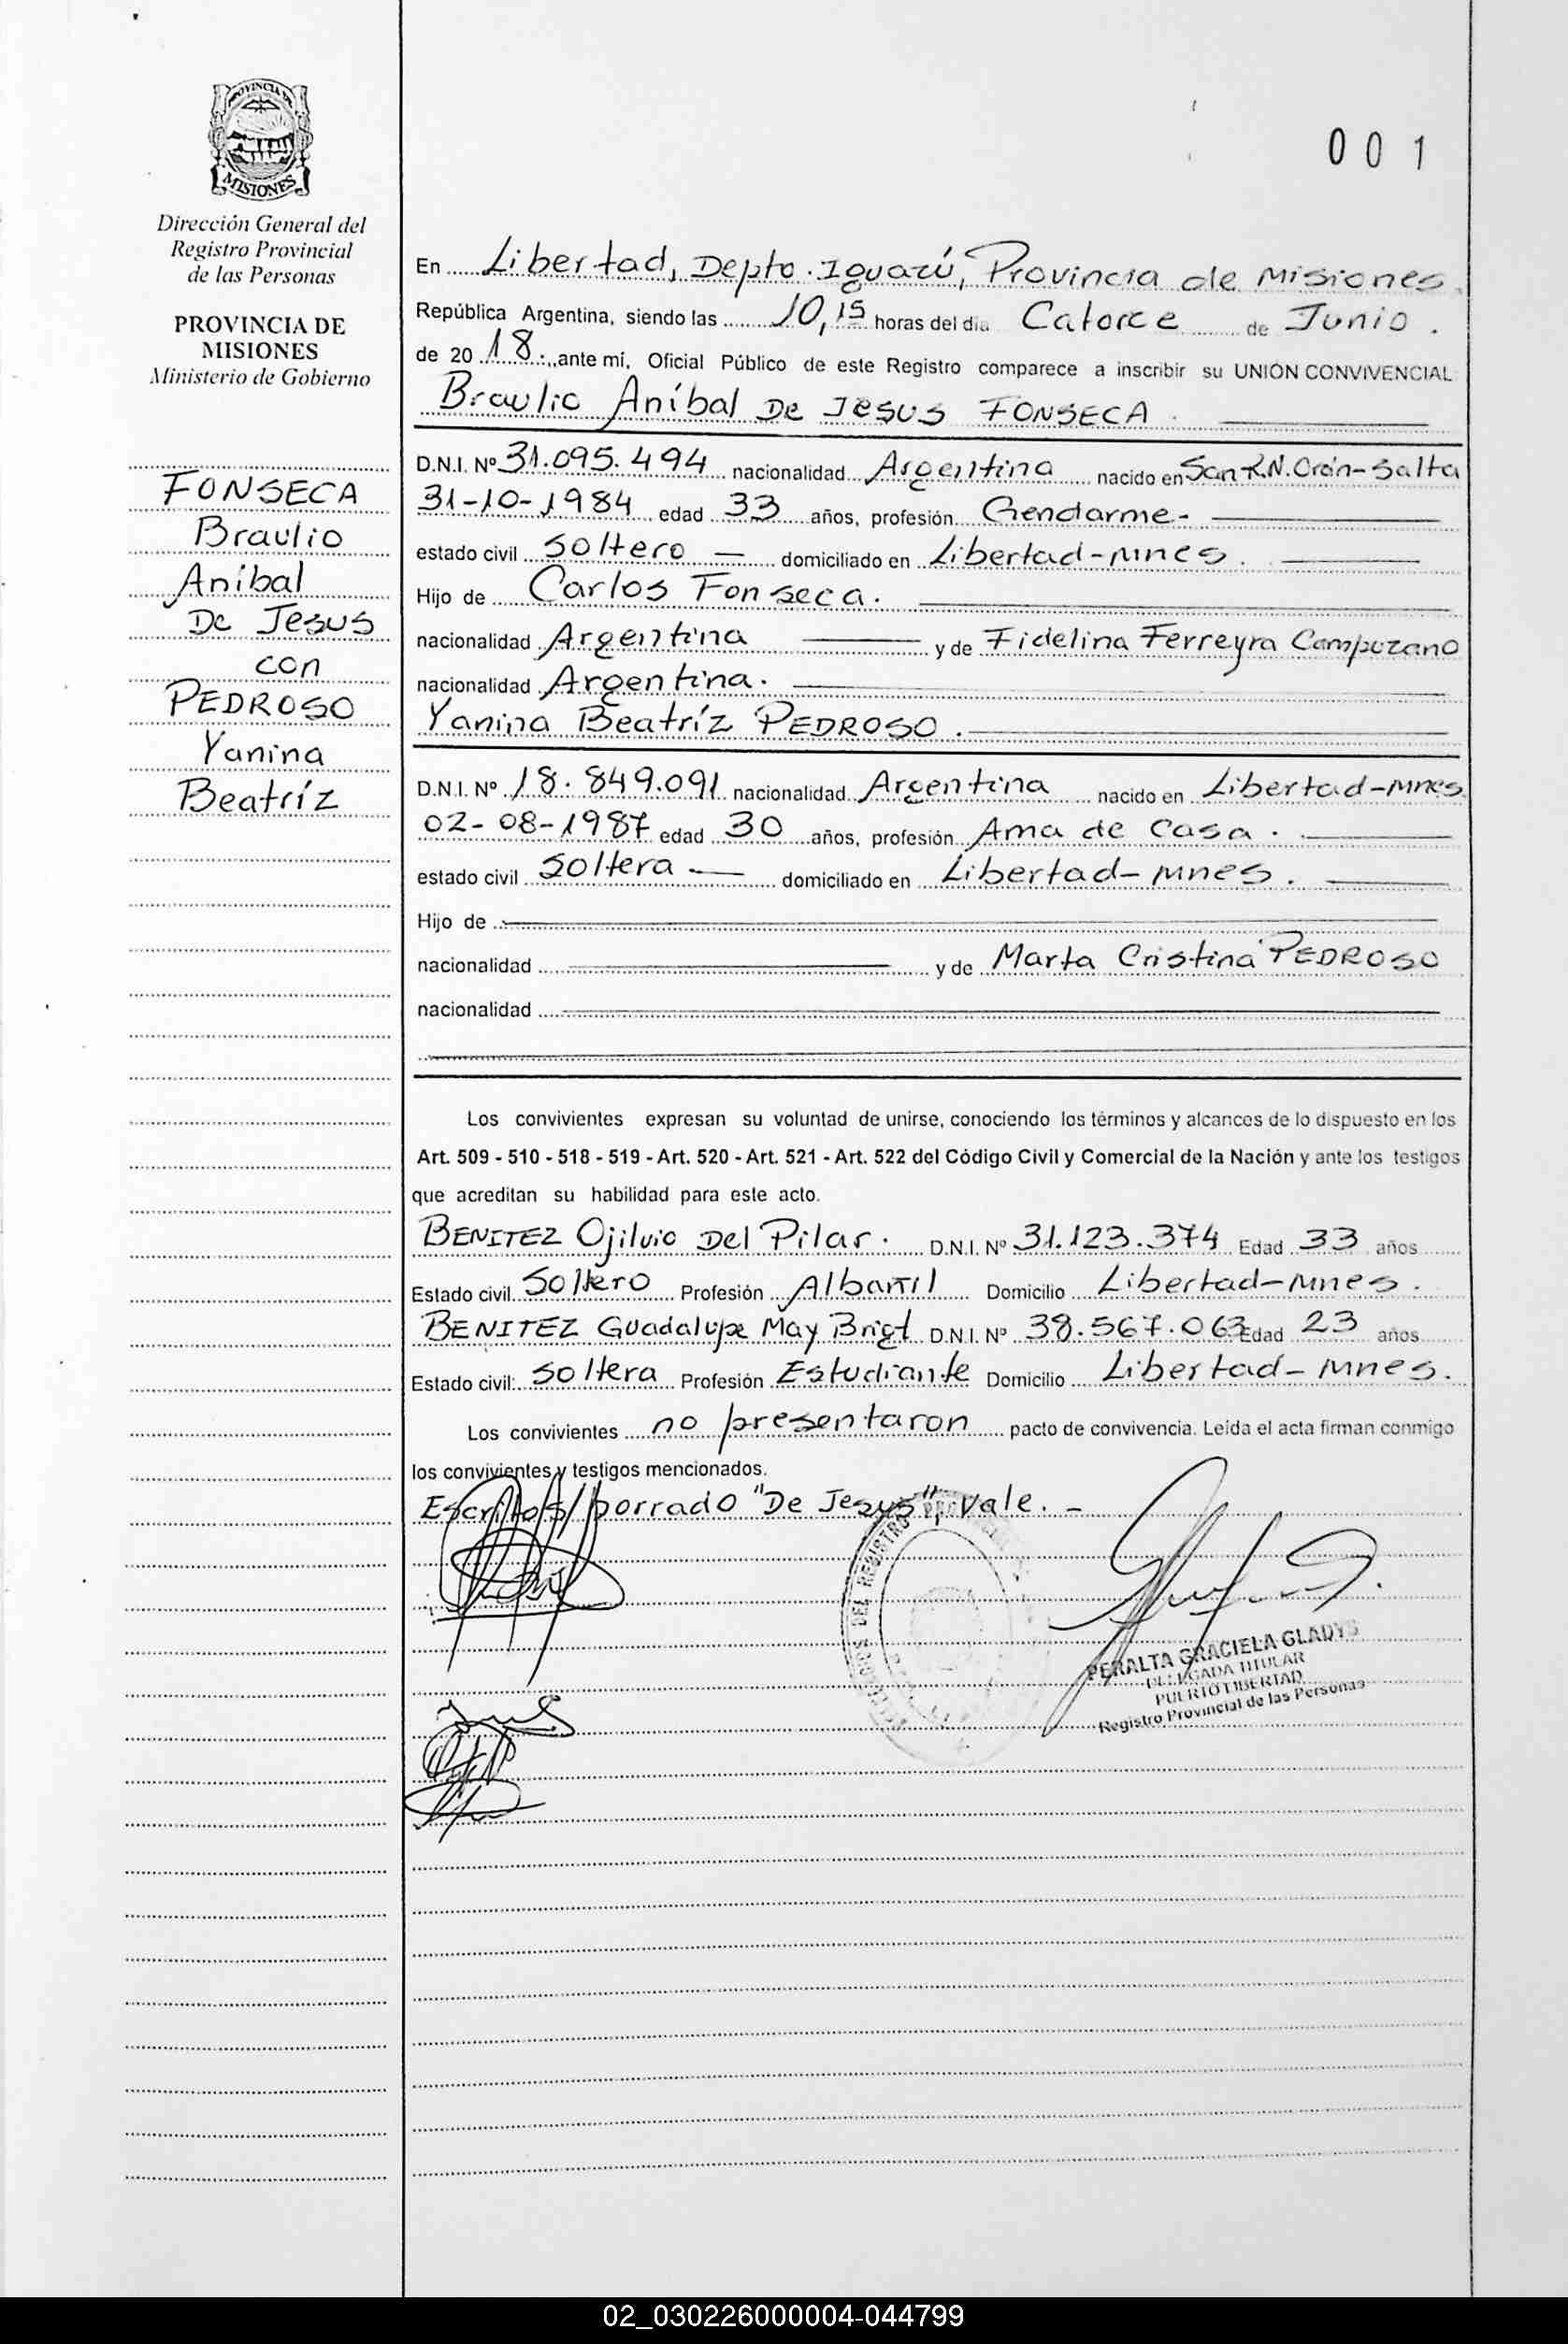 PROVINCIA DE
MISIONES
Dirección General del
Registro Provincial
de las Personas
PROVINCIA DE
MISIONES
Ministerio de Gobierno
FONSECA
Braulio
Aníbal
De Jesus
con
PEDROSO
Yanina
Beatríz
001
En Libertad, Depto. Iguazú, Provincia de Misiones.
República Argentina, siendo las 10,15 horas del día Catorce de Junio.
de 2018., ante mí, Oficial Público de este Registro comparece a inscribir su UNION CONVIVENCIAL
Braulio Aníbal De Jesus FONSECA.
D.N.I. Nº 31.095.494 nacionalidad Argentina nacido en San R.N. Orán-Salta
31-10-1984 edad 33 años, profesión Gendarme-
estado civil Soltero — domiciliado en Libertad-Mnes.
Hijo de Carlos Fonseca.
nacionalidad Argentina y de Fidelina Ferreyra Campuzano
nacionalidad Argentina.
Yanina Beatríz PEDROSO.
D.N.I. Nº 18.849.091 nacionalidad Argentina nacido en Libertad-Mnes
02-08-1987 edad 30 años, profesión Ama de Casa.
estado civil Soltera.— domiciliado en Libertad-Mnes.
Hijo de
nacionalidad y de Marta Cristina PEDROSO
nacionalidad
Los convivientes expresan su voluntad de unirse, conociendo los términos y alcances de lo dispuesto en los
Art. 509 - 510 - 518 - 519 - Art. 520 - Art. 521 - Art. 522 del Código Civil y Comercial de la Nación y ante los testigos
que acreditan su habilidad para este acto.
BENITEZ Ojilvio Del Pilar. D.N.I. Nº 31.123.374 Edad 33 años
Estado civil Soltero Profesión Albañil Domicilio Libertad-Mnes.
BENITEZ Guadalupe May Brigt D.N.I. Nº 38.567.063 Edad 23 años
Estado civil: Soltera Profesión Estudiante Domicilio Libertad-Mnes.
Los convivientes no presentaron pacto de convivencia. Leída el acta firman conmigo
los convivientes y testigos mencionados.
Escritos/borrado "De Jesus", Vale.-
DEL REGISTRO
PERALTA GRACIELA GLADYS
DELEGADA TITULAR
PUERTO LIBERTAD
Registro Provincial de las Personas
02_030226000004-044799